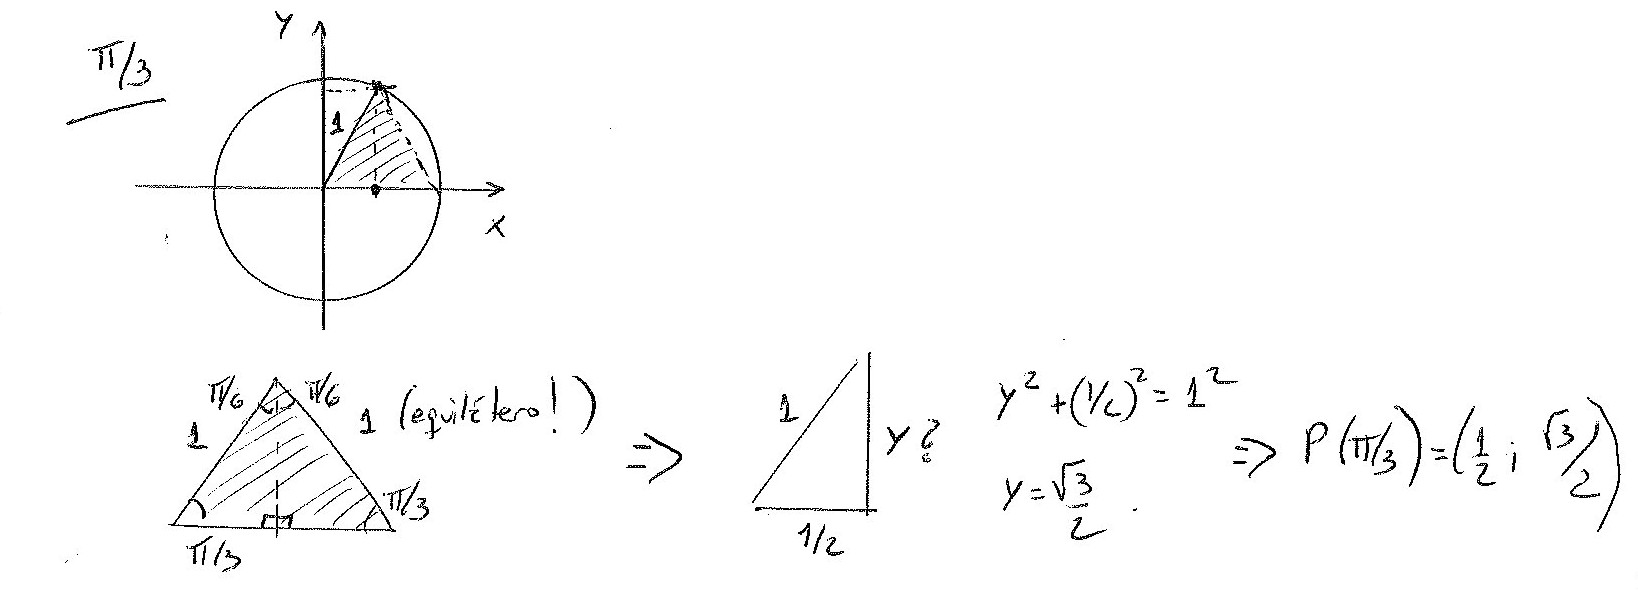 π/3
Y
1
X
π/6 π/6
1 1 (equilátero!)
π/3
π/3
⇒
1
y?
1/2
y² + (1/2)² = 1²
y = √3/2.
⇒ P(π/3) = (1/2 ; √3/2)